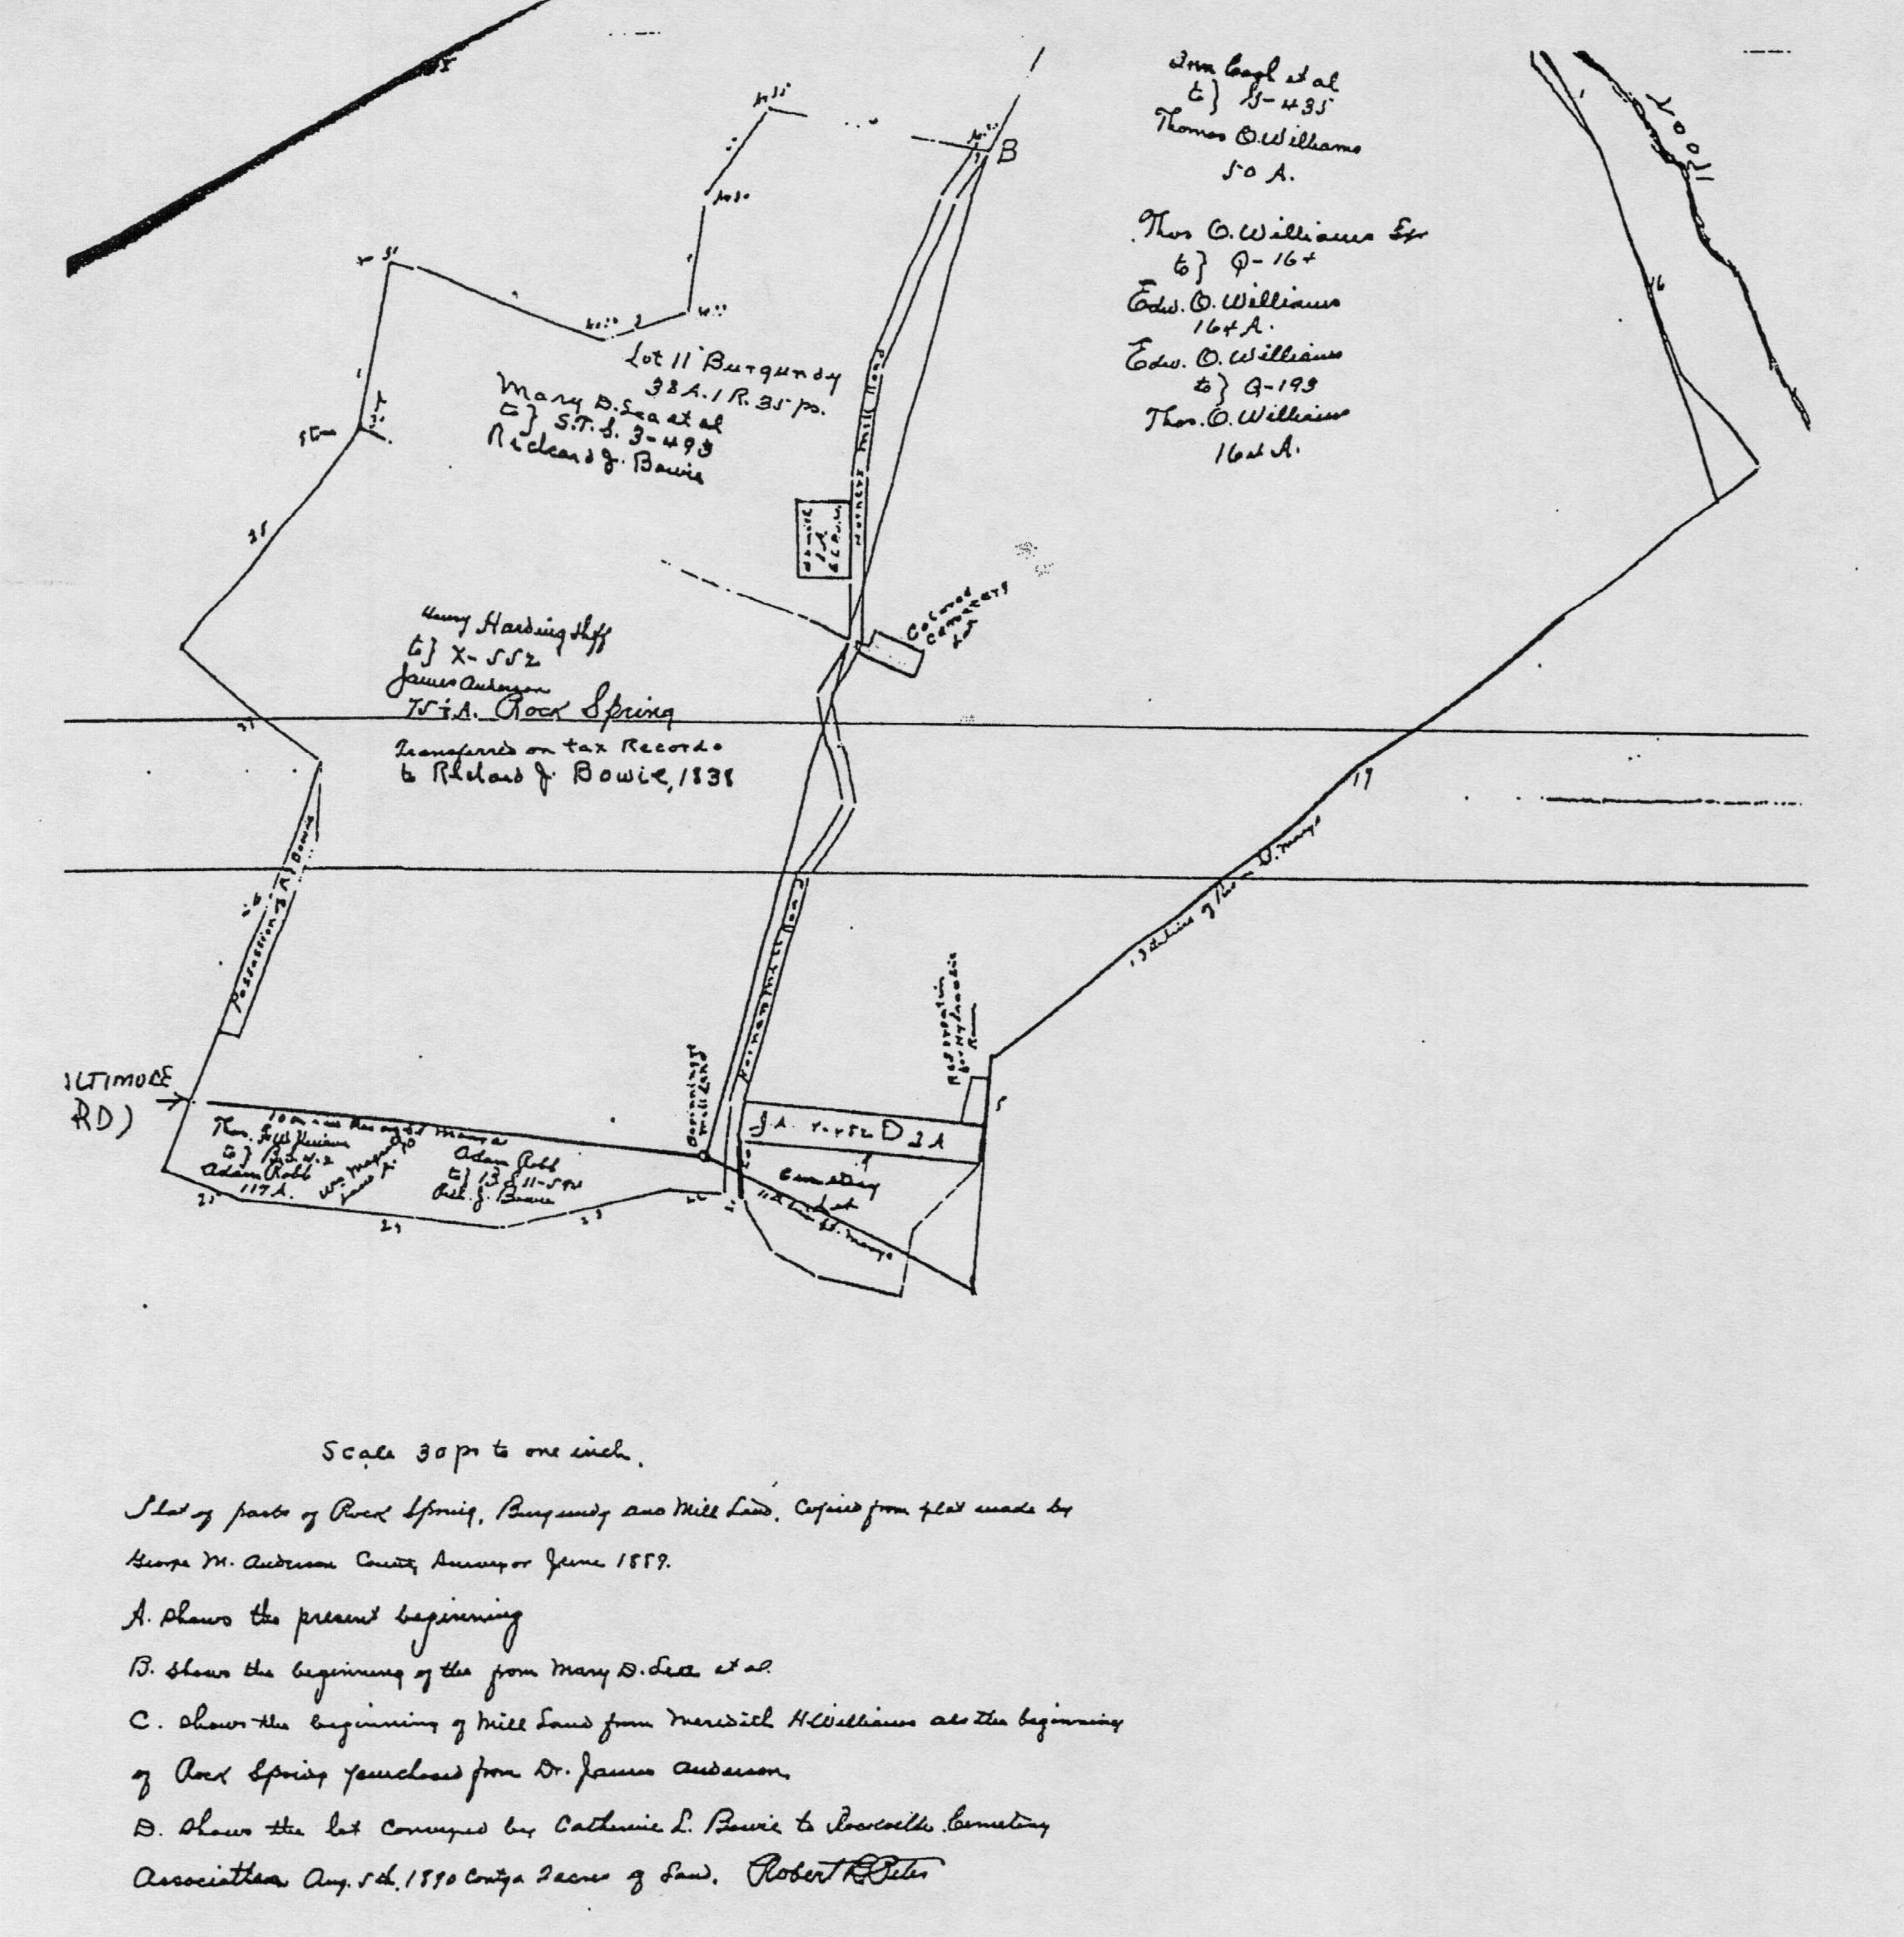 B
et al
to } JJ-435
Thomas O. Williams
50 A.
Thos O. Williams Exr
to } Q-164
Edw. O. Williams
164 A.
Edw. O. Williams
to } Q-193
Thos. O. Williams
164 A.
ROCK
16
Lot 11 Burgundy
38 A. 1 R. 35 ps.
Mary D. Lea et al
to } S.T.S. 3-493
Richard J. Bowie
Horners Mill Road
2 A.
Colored
Cemetery
Lot
25
Henry Harding Shff
to } X-552
James Anderson
75½ A. Rock Spring
Transferred on tax Records
to Richard J. Bowie, 1838
19
13th line of St. Marys
Possession of R J Bowie
Horners Mill Road
Reservation
for Hydraulic
Ram
5
Beginning
Mill Land
ILTIMORE
RD)
10th line St Marys
Thos. Williams
to } B.S. 4-2
Adam Robb
117 A.
Adam Robb
to } B S 11-
Rich. J. Bowie
J.A. D 2 A
Cemetery
Lot
11th line St. Marys
25
24
23
22
Scale 30 ps to one inch.
Plat of parts of Rock Spring, Burgundy and Mill Land. Copied from plat made by
George M. Anderson County Surveyor June 1889.
A. Shows the present beginning
B. Shows the beginning of the from Mary D. Lea et al.
C. Shows the beginning of Mill Land from Meredith H Williams als the beginning
of Rock Spring purchased from Dr. James Anderson.
D. Shows the lot conveyed by Catherine L. Bowie to Rockville Cemetery
Association Aug. 5th, 1890 Contg 2 acres of Land. Robert Peter